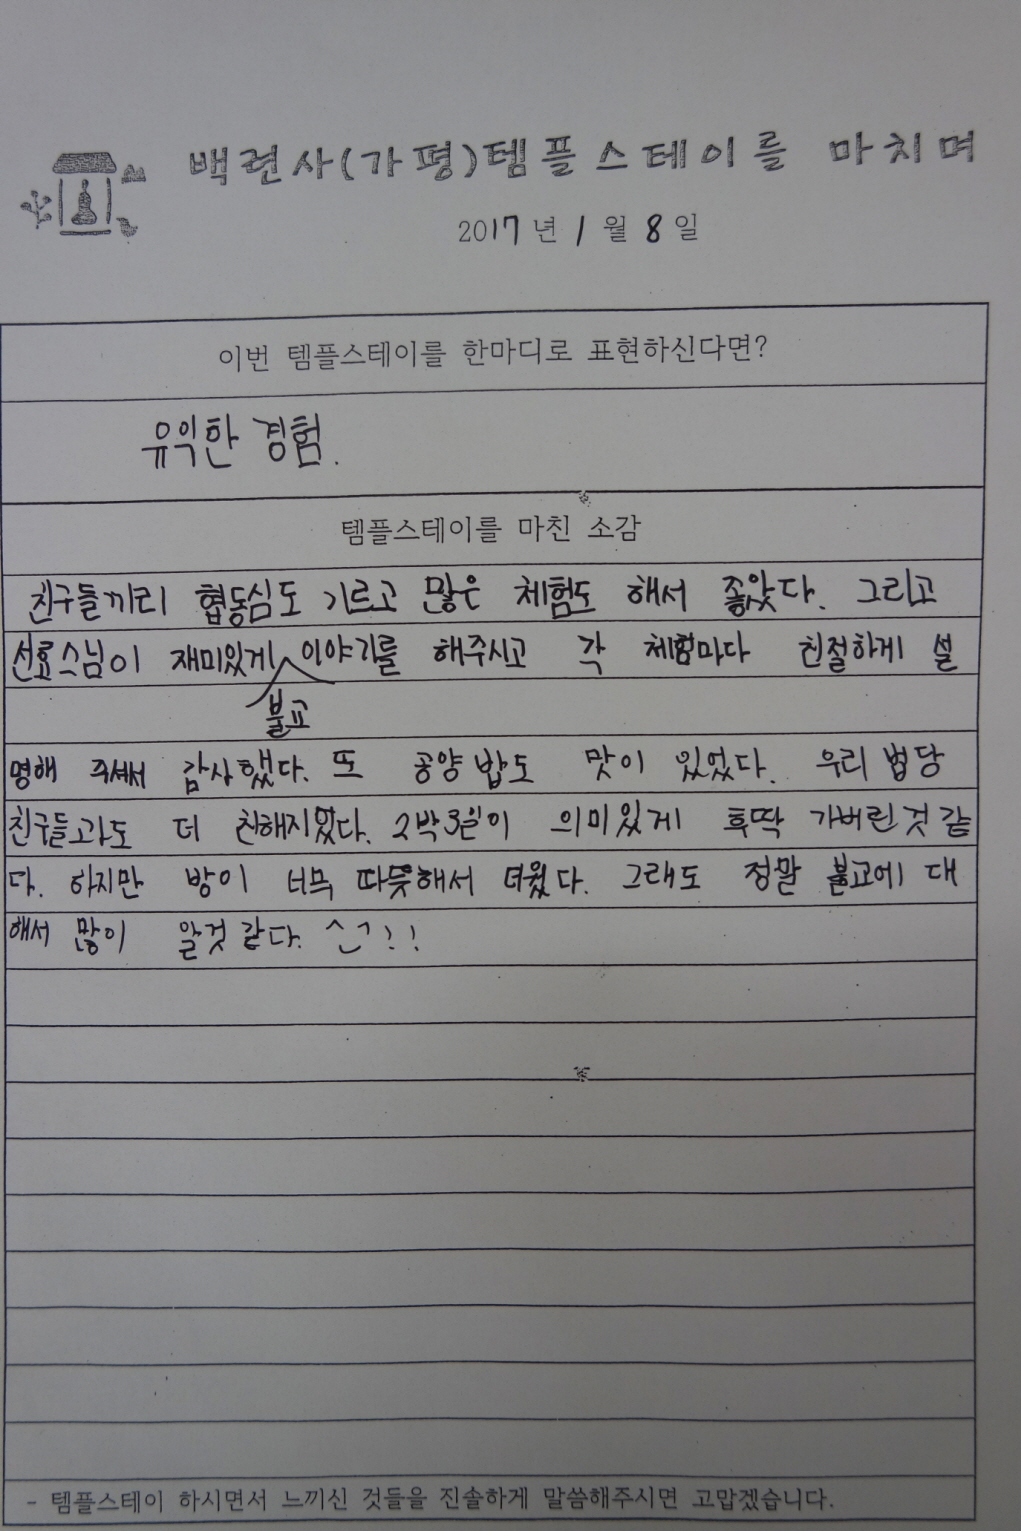 백련사(가평)템플스테이를 마치며
2017년 1월 8일
이번 템플스테이를 한마디로 표현하신다면?
유익한 경험.
템플스테이를 마친 소감
친구들끼리 협동심도 기르고 많은 체험도 해서 좋았다. 그리고
선료스님이 재미있게 이야기를 해주시고 각 체험마다 친절하게 설
불교
명해 주셔서 감사했다. 또 공양밥도 맛이 있었다. 우리 법당
친구들과도 더 친해지었다. 2박3일이 의미있게 후딱 가버린것 같
다. 하지만 방이 너무 따뜻해서 더웠다. 그래도 정말 불교에 대
해서 많이 알것 같다. ^_^!!
- 템플스테이 하시면서 느끼신 것들을 진솔하게 말씀해주시면 고맙겠습니다.